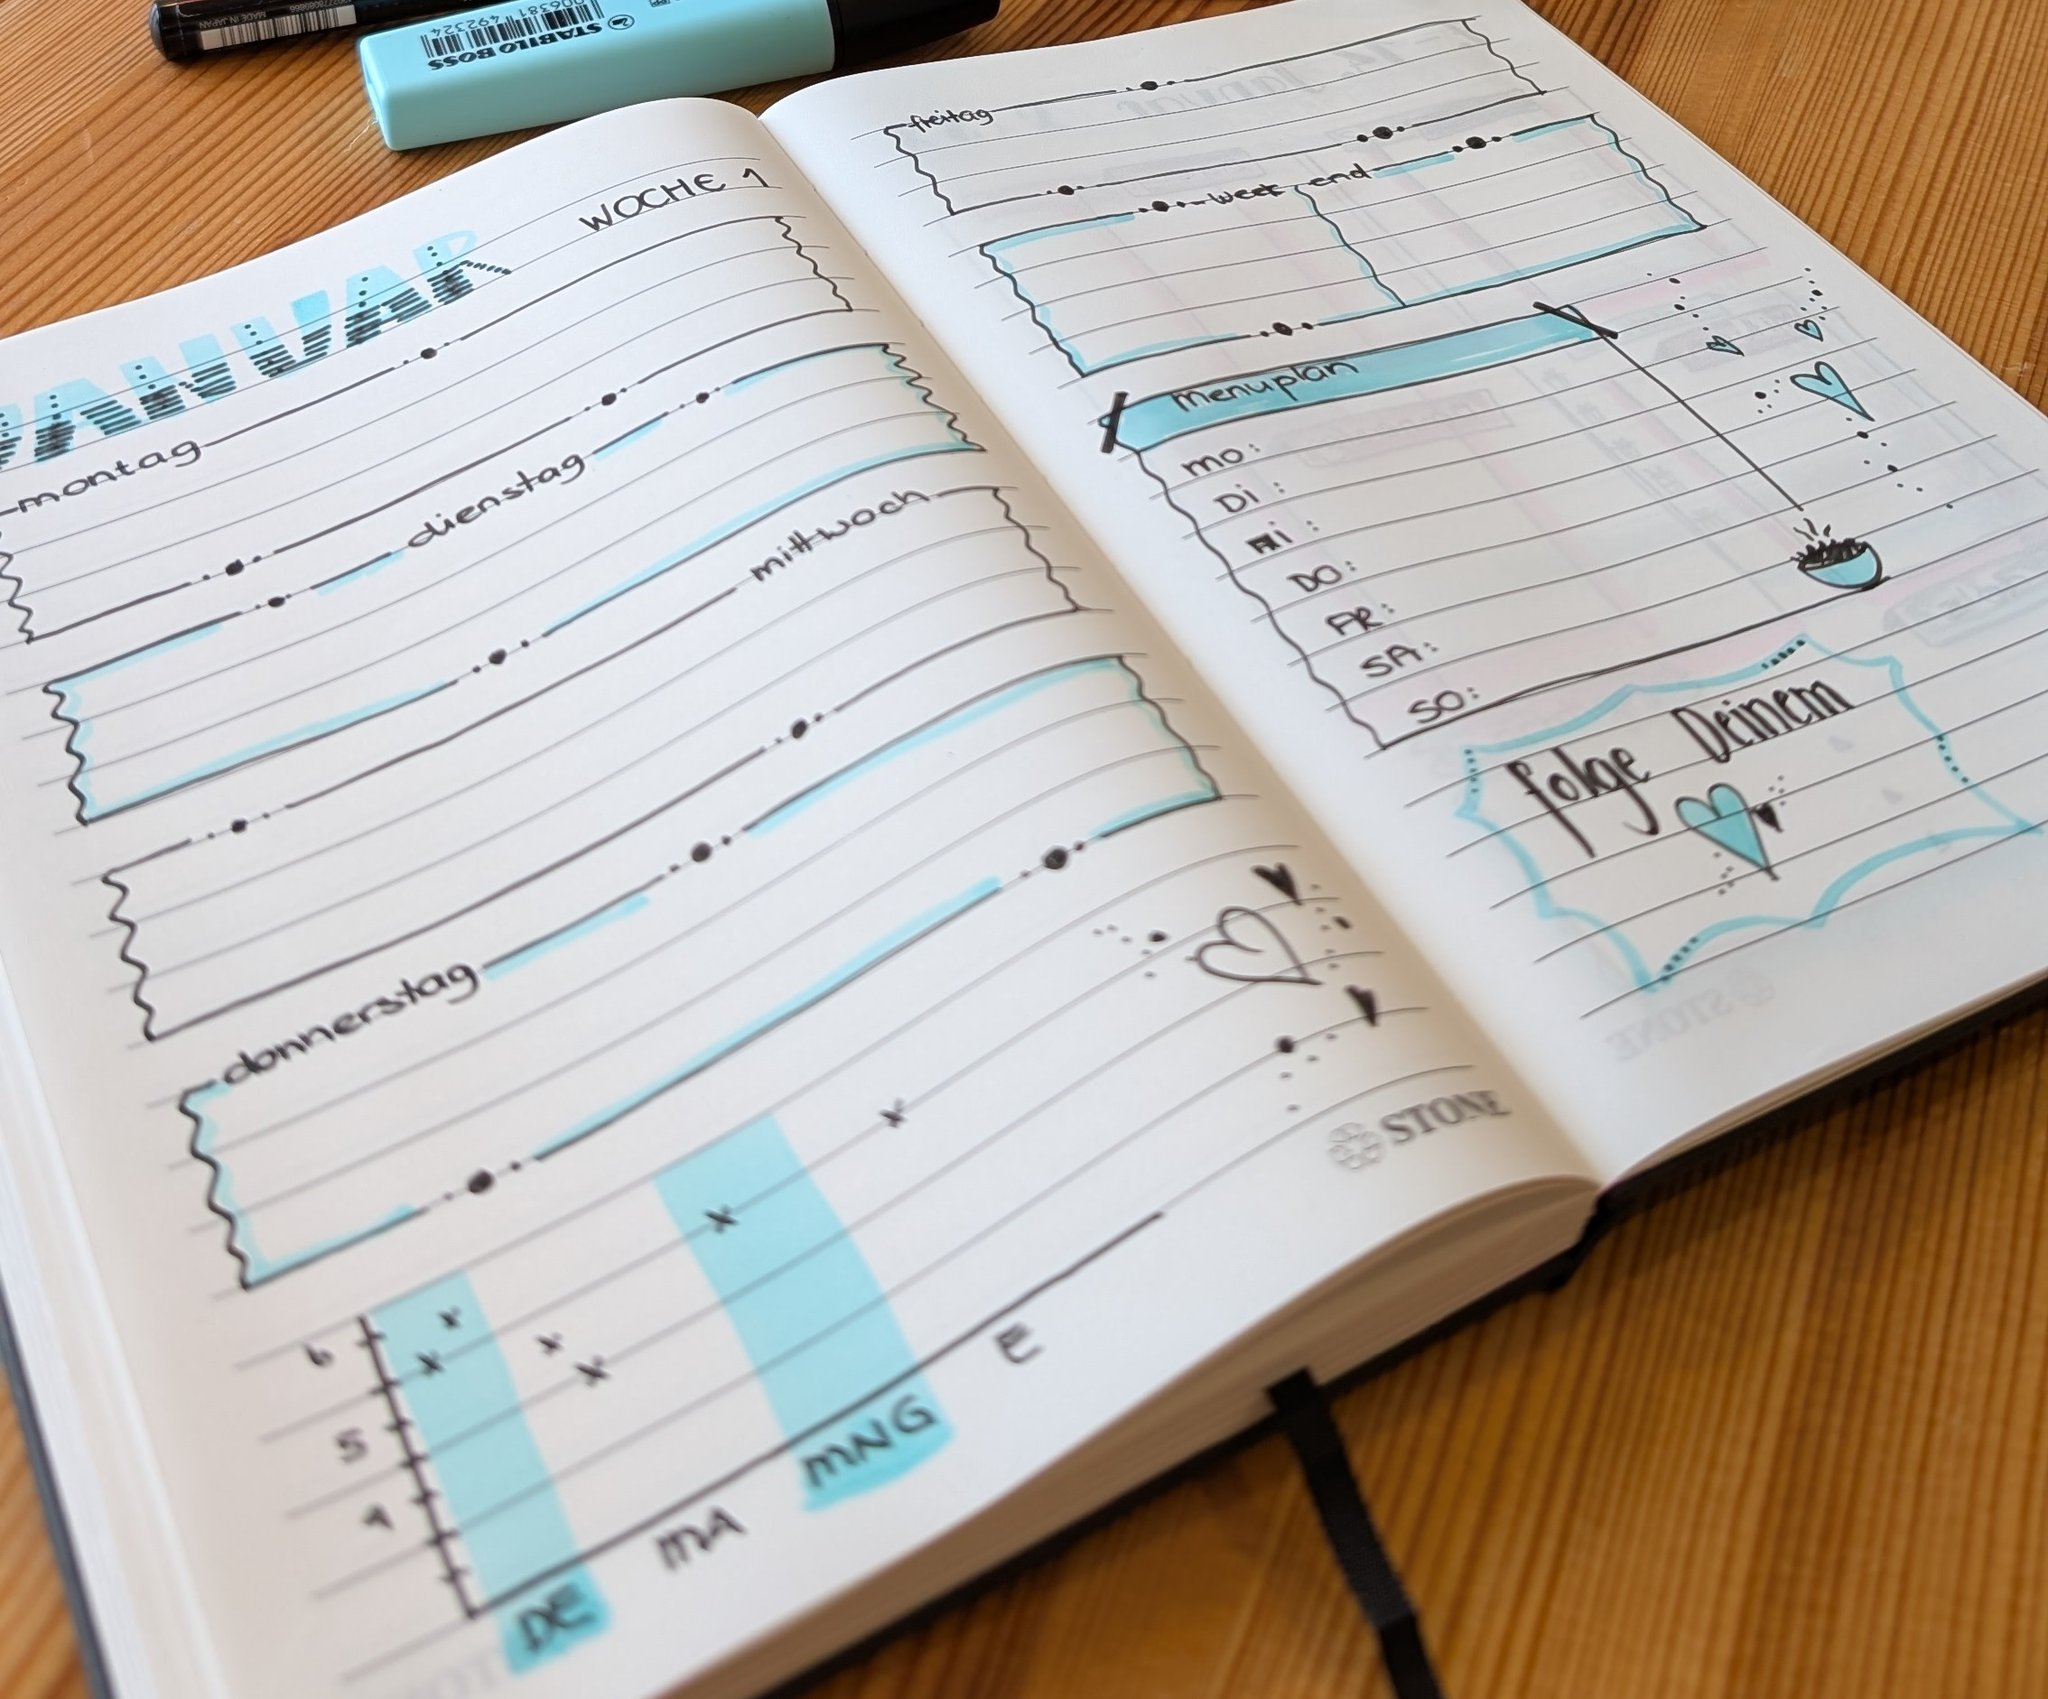 MADE IN JAPAN
STABILO BOSS
JANUAR
WOCHE 1
montag
dienstag
mittwoch
donnerstag
6
5
4
DE
MA
MNG
E
STONE
freitag
week end
Menuplan
MO:
Di :
Mi :
DO:
FR:
SA:
SO:
folge Deinem
STONE